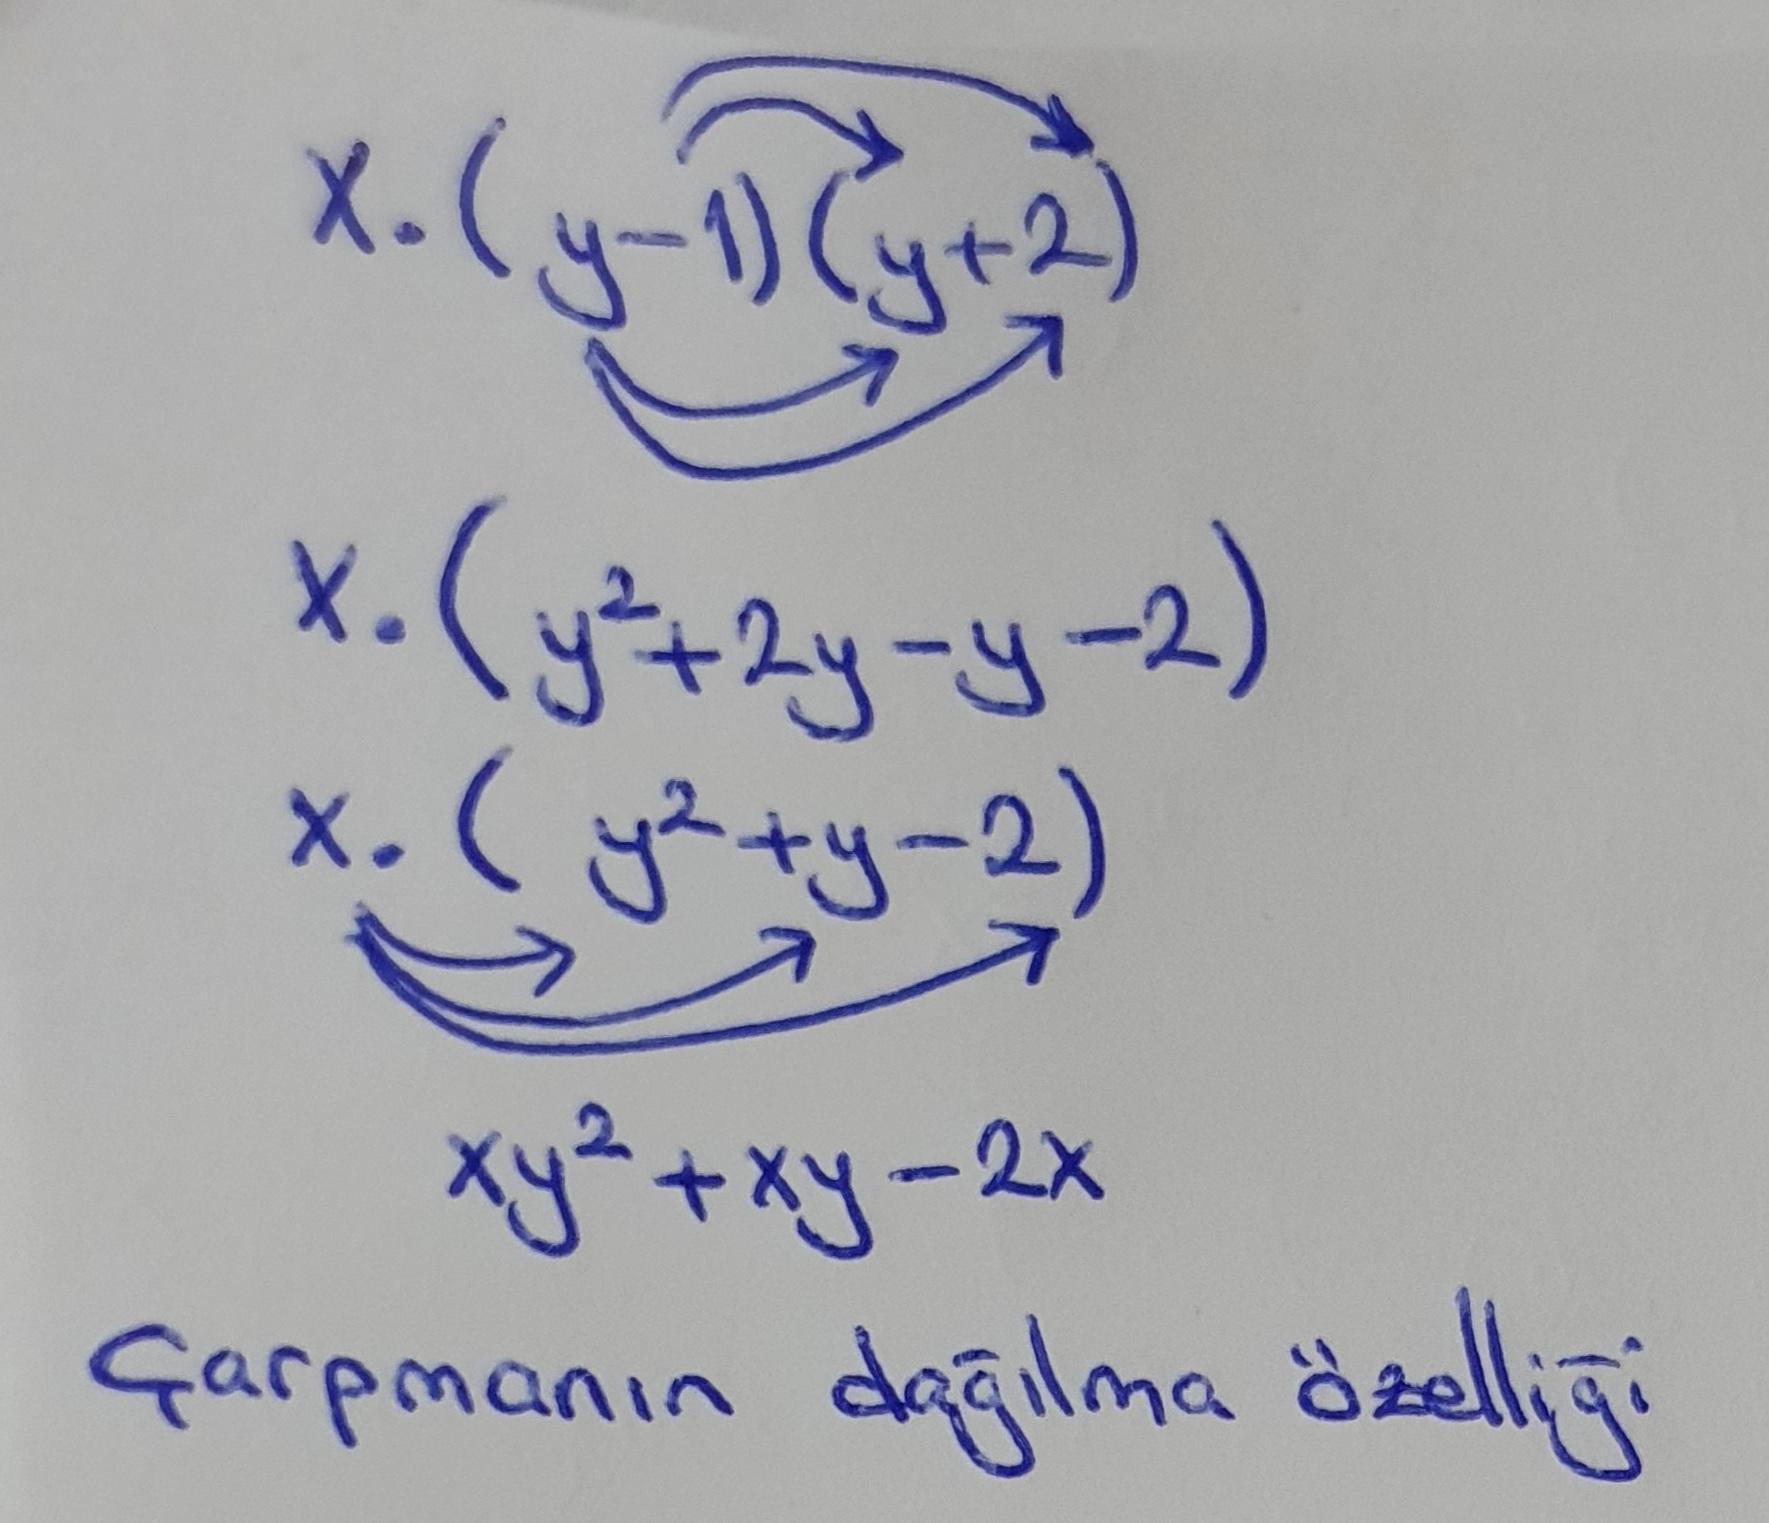 x.(y-1)(y+2)
x.(y²+2y-y-2)
x.(y²+y-2)
xy²+xy-2x
Çarpmanın dağılma özelliği